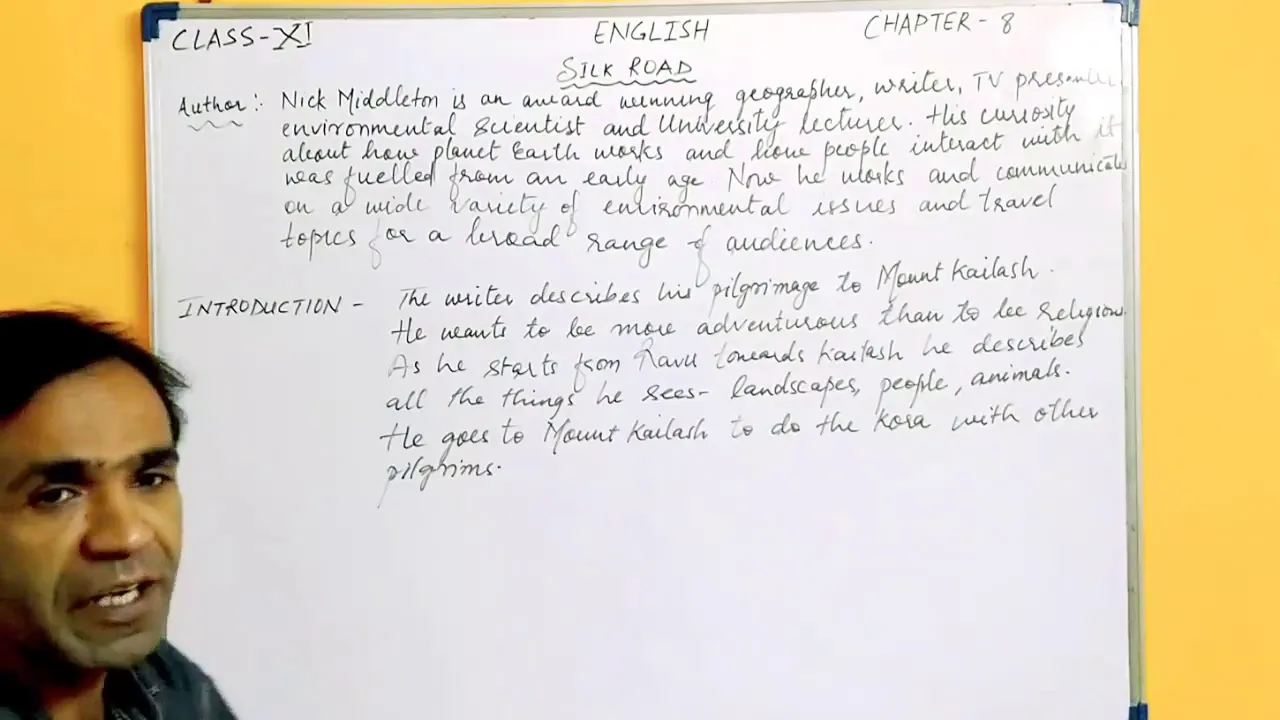 CLASS-XI ENGLISH CHAPTER-8
SILK ROAD
Author:- Nick Middleton is an award winning geographer, writer, TV presenter
environmental scientist and University lecturer. His curiosity
about how planet Earth works and how people interact with it
was fuelled from an early age. Now he works and communicates
on a wide variety of environmental issues and travel
topics for a broad range of audiences.
INTRODUCTION - The writer describes his pilgrimage to Mount Kailash.
He wants to be more adventurous than to be religious.
As he starts from Ravu towards Kailash he describes
all the things he sees- landscapes, people, animals.
He goes to Mount Kailash to do the Kora with other
pilgrims.